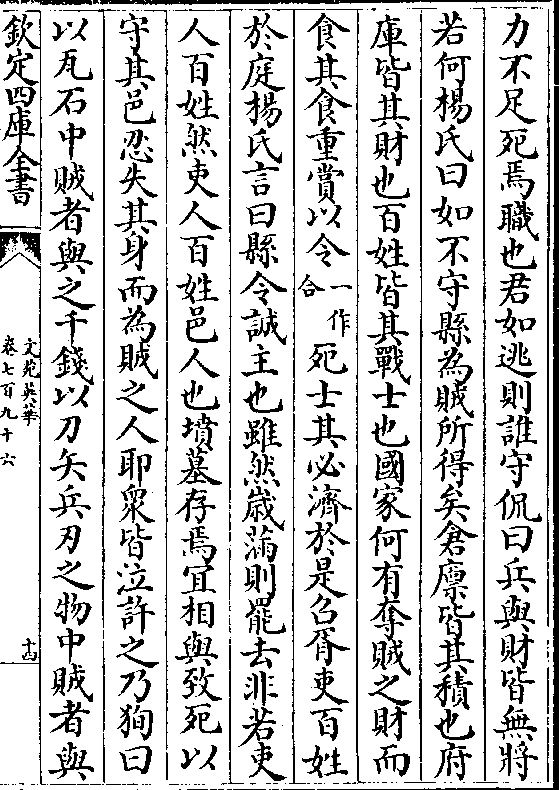 力不足死焉職也君如逃則誰守侃曰兵與財皆無將
若何楊氏曰如不守縣為賊所得矣倉廩皆其積也府
庫皆其財也百姓皆其戰士也國家何有奪賊之財而
食其食重賞以令一作合死士其必濟於是召胥吏百姓
於庭楊氏言曰縣令誠主也雖然歲滿則罷去非若吏
人百姓然吏人百姓邑人也墳墓存焉宜相與致死以
守其邑忍失其身而為賊之人耶衆皆泣許之乃狥曰
以瓦石中賊者與之千錢以刀矢兵刃之物中賊者與
欽定四庫全書
文苑英華
卷七百九十六
十四